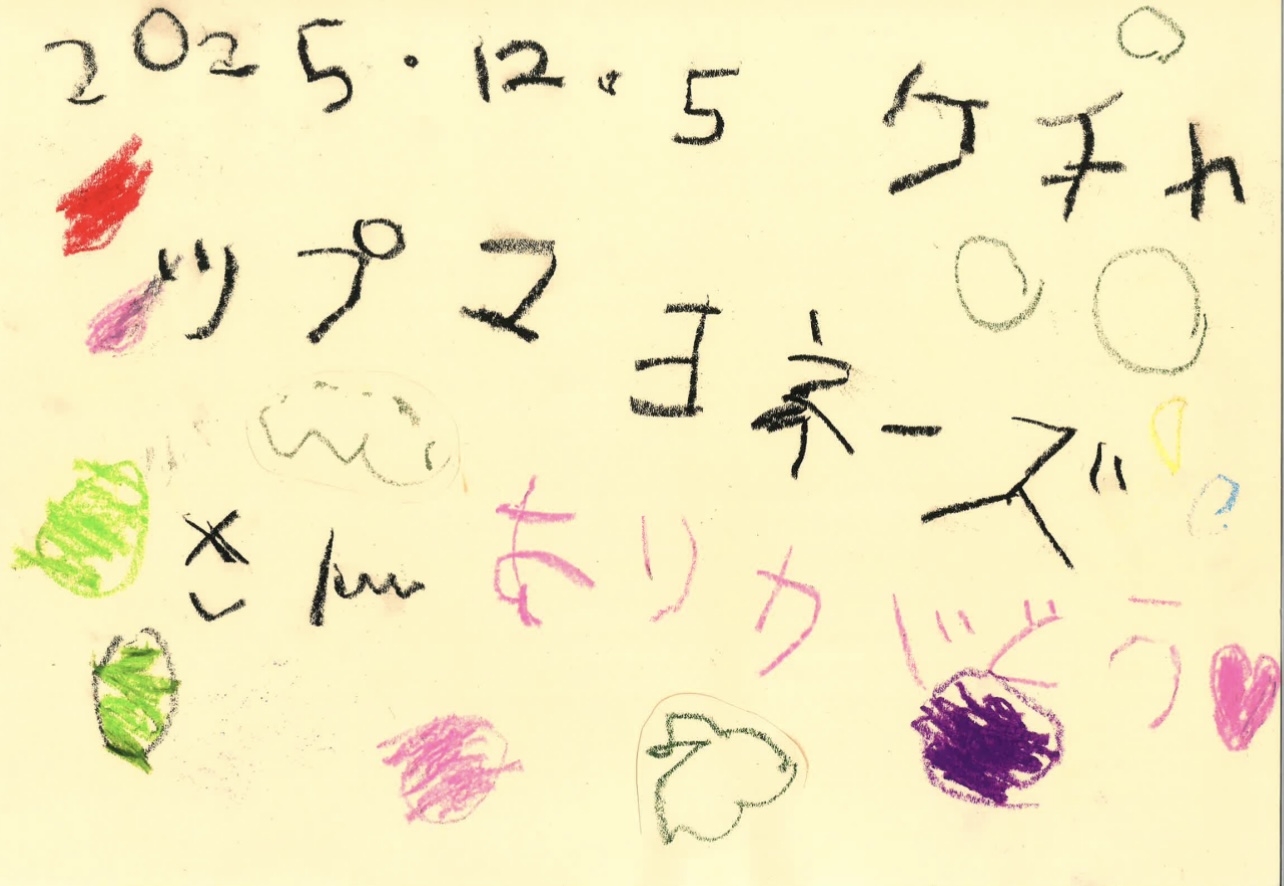 2025.12.5 ケチャ
ップマヨネーズ
さん ありがどう